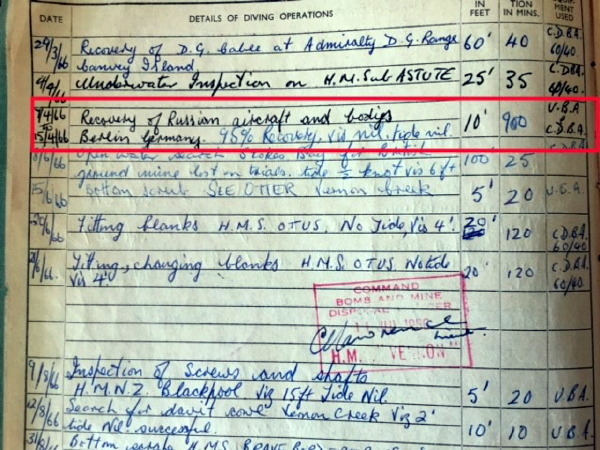 DATE DETAILS OF DIVING OPERATIONS IN FEET TION IN MINS. MENT USED
29/3/66 Recovery of D.G. Cable at Admiralty D.G. Range 60' 40 C.D.B.A.
Canvey Island 60/40
Underwater Inspection on H.M. Sub ASTUTE 25' 35 C.D.B.A. 60/40.
7/4/66 Recovery of Russian aircraft and bodies 10' 900 U.B.A
15/4/66 Berlin Germany. 95% Recovery, Vis nil, tide nil. C.D.B.A.
/6/66 Open water search Stokes Bay for British 100 25
ground mine lost on trials. tide ½ knot vis 6ft
15/6/66 Bottom scrub SEE OTTER Creek 5' 20 U.B.A.
20/6/66 Fitting blanks H.M.S. OTUS, No Tide, Vis 4'. 20' 120 C.D.B.A. 60/40
2/6/66. Fitting, changing blanks H.M.S. OTUS. No tide 20' 120 C.D.B.A.
Vis 4' 60/40
COMMAND
BOMB AND MINE
DISPOSAL
H.M. VERNON"
9/8/66 Inspection of Screws and shafts
H.M.N.Z. Blackpool Viz 15ft Tide Nil. 5' 20 U.B.A.
12/8/66 Search for davit Creek Viz 2'
tide Nil. successful 10' 10 U.B.A.
31/8/ Bottom H.M.S. BRAVE